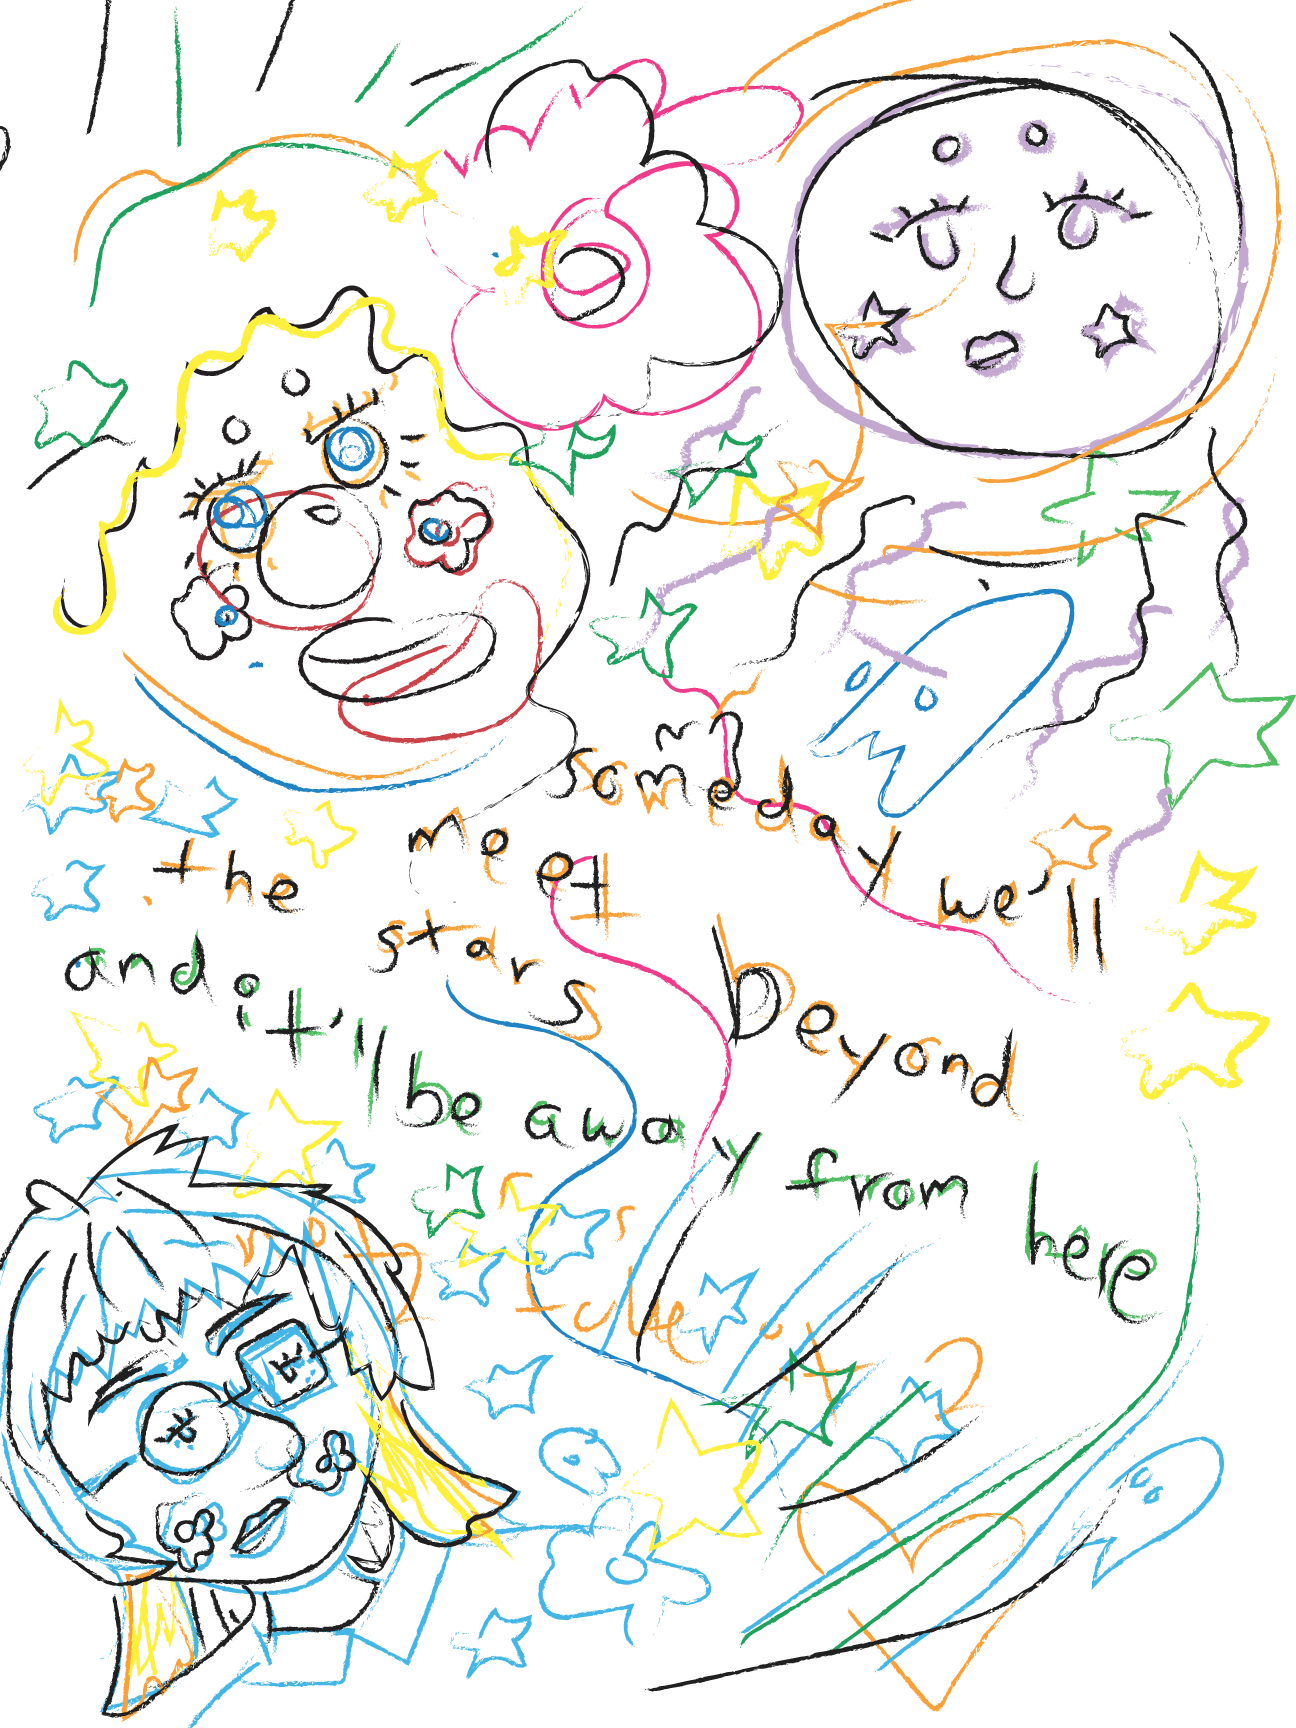 someday we'll
meet beyond
the stars
and it'll be away from here